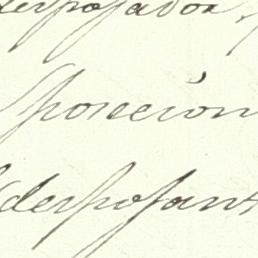 desposador,
Sposicion
desposant